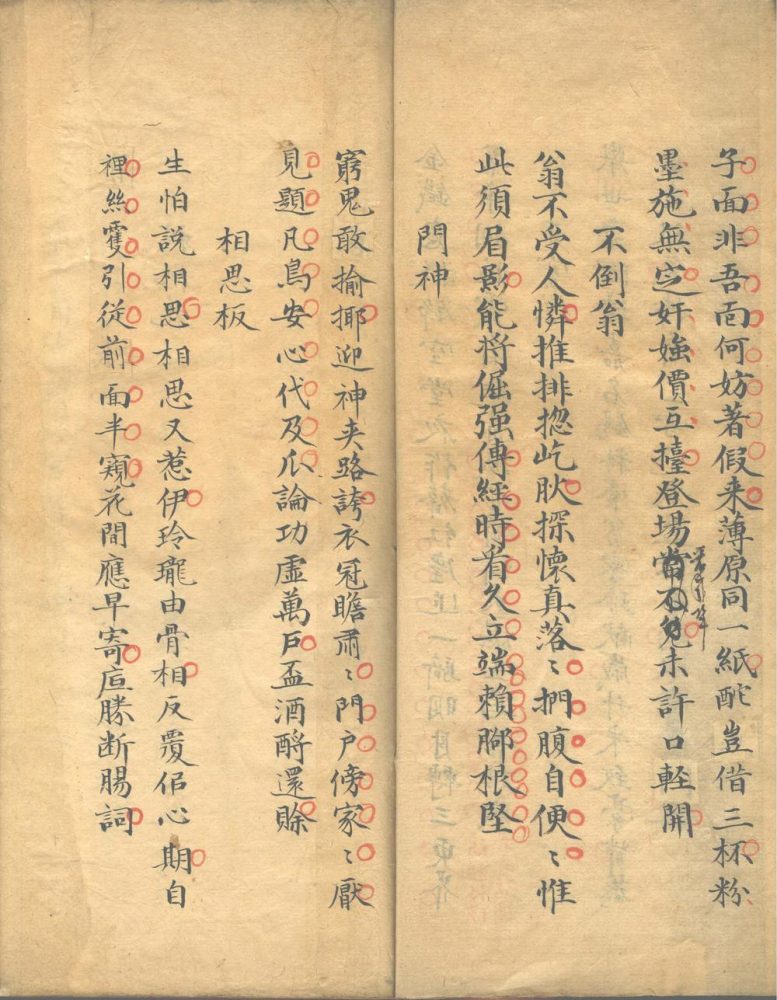 子面非吾面何妨著假来薄原同一紙酡豈借三杯粉
墨施無定奸媸價互擡登場當不免未許口輕開
不倒翁
翁不受人憐推排揔屹肰探懷真落〻捫腹自便〻惟
此須眉影能将倔强傳經時看久立端賴腳根堅
門神
窮鬼敢揄揶迎神夾路誇衣冠瞻肅〻門户傍家〻厭
見題凡鳥安心代及瓜論功虛萬戶盃酒酧還賖
相思板
生怕說相思相思又惹伊玲瓏由骨相反覆佀心期自
裡絲䨥引從前面半窺花間應早寄底勝断腸詞